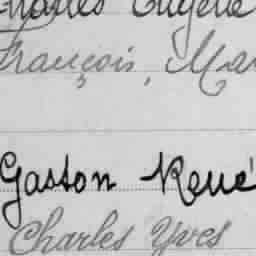 Charles Eugène
François, Ma
Gaston René
Charles Yves